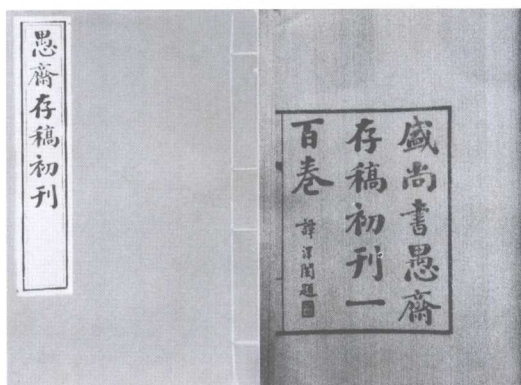 愚齋存稿初刊
盛尚書愚齋
存稿初刊一
百卷
譚澤闓題